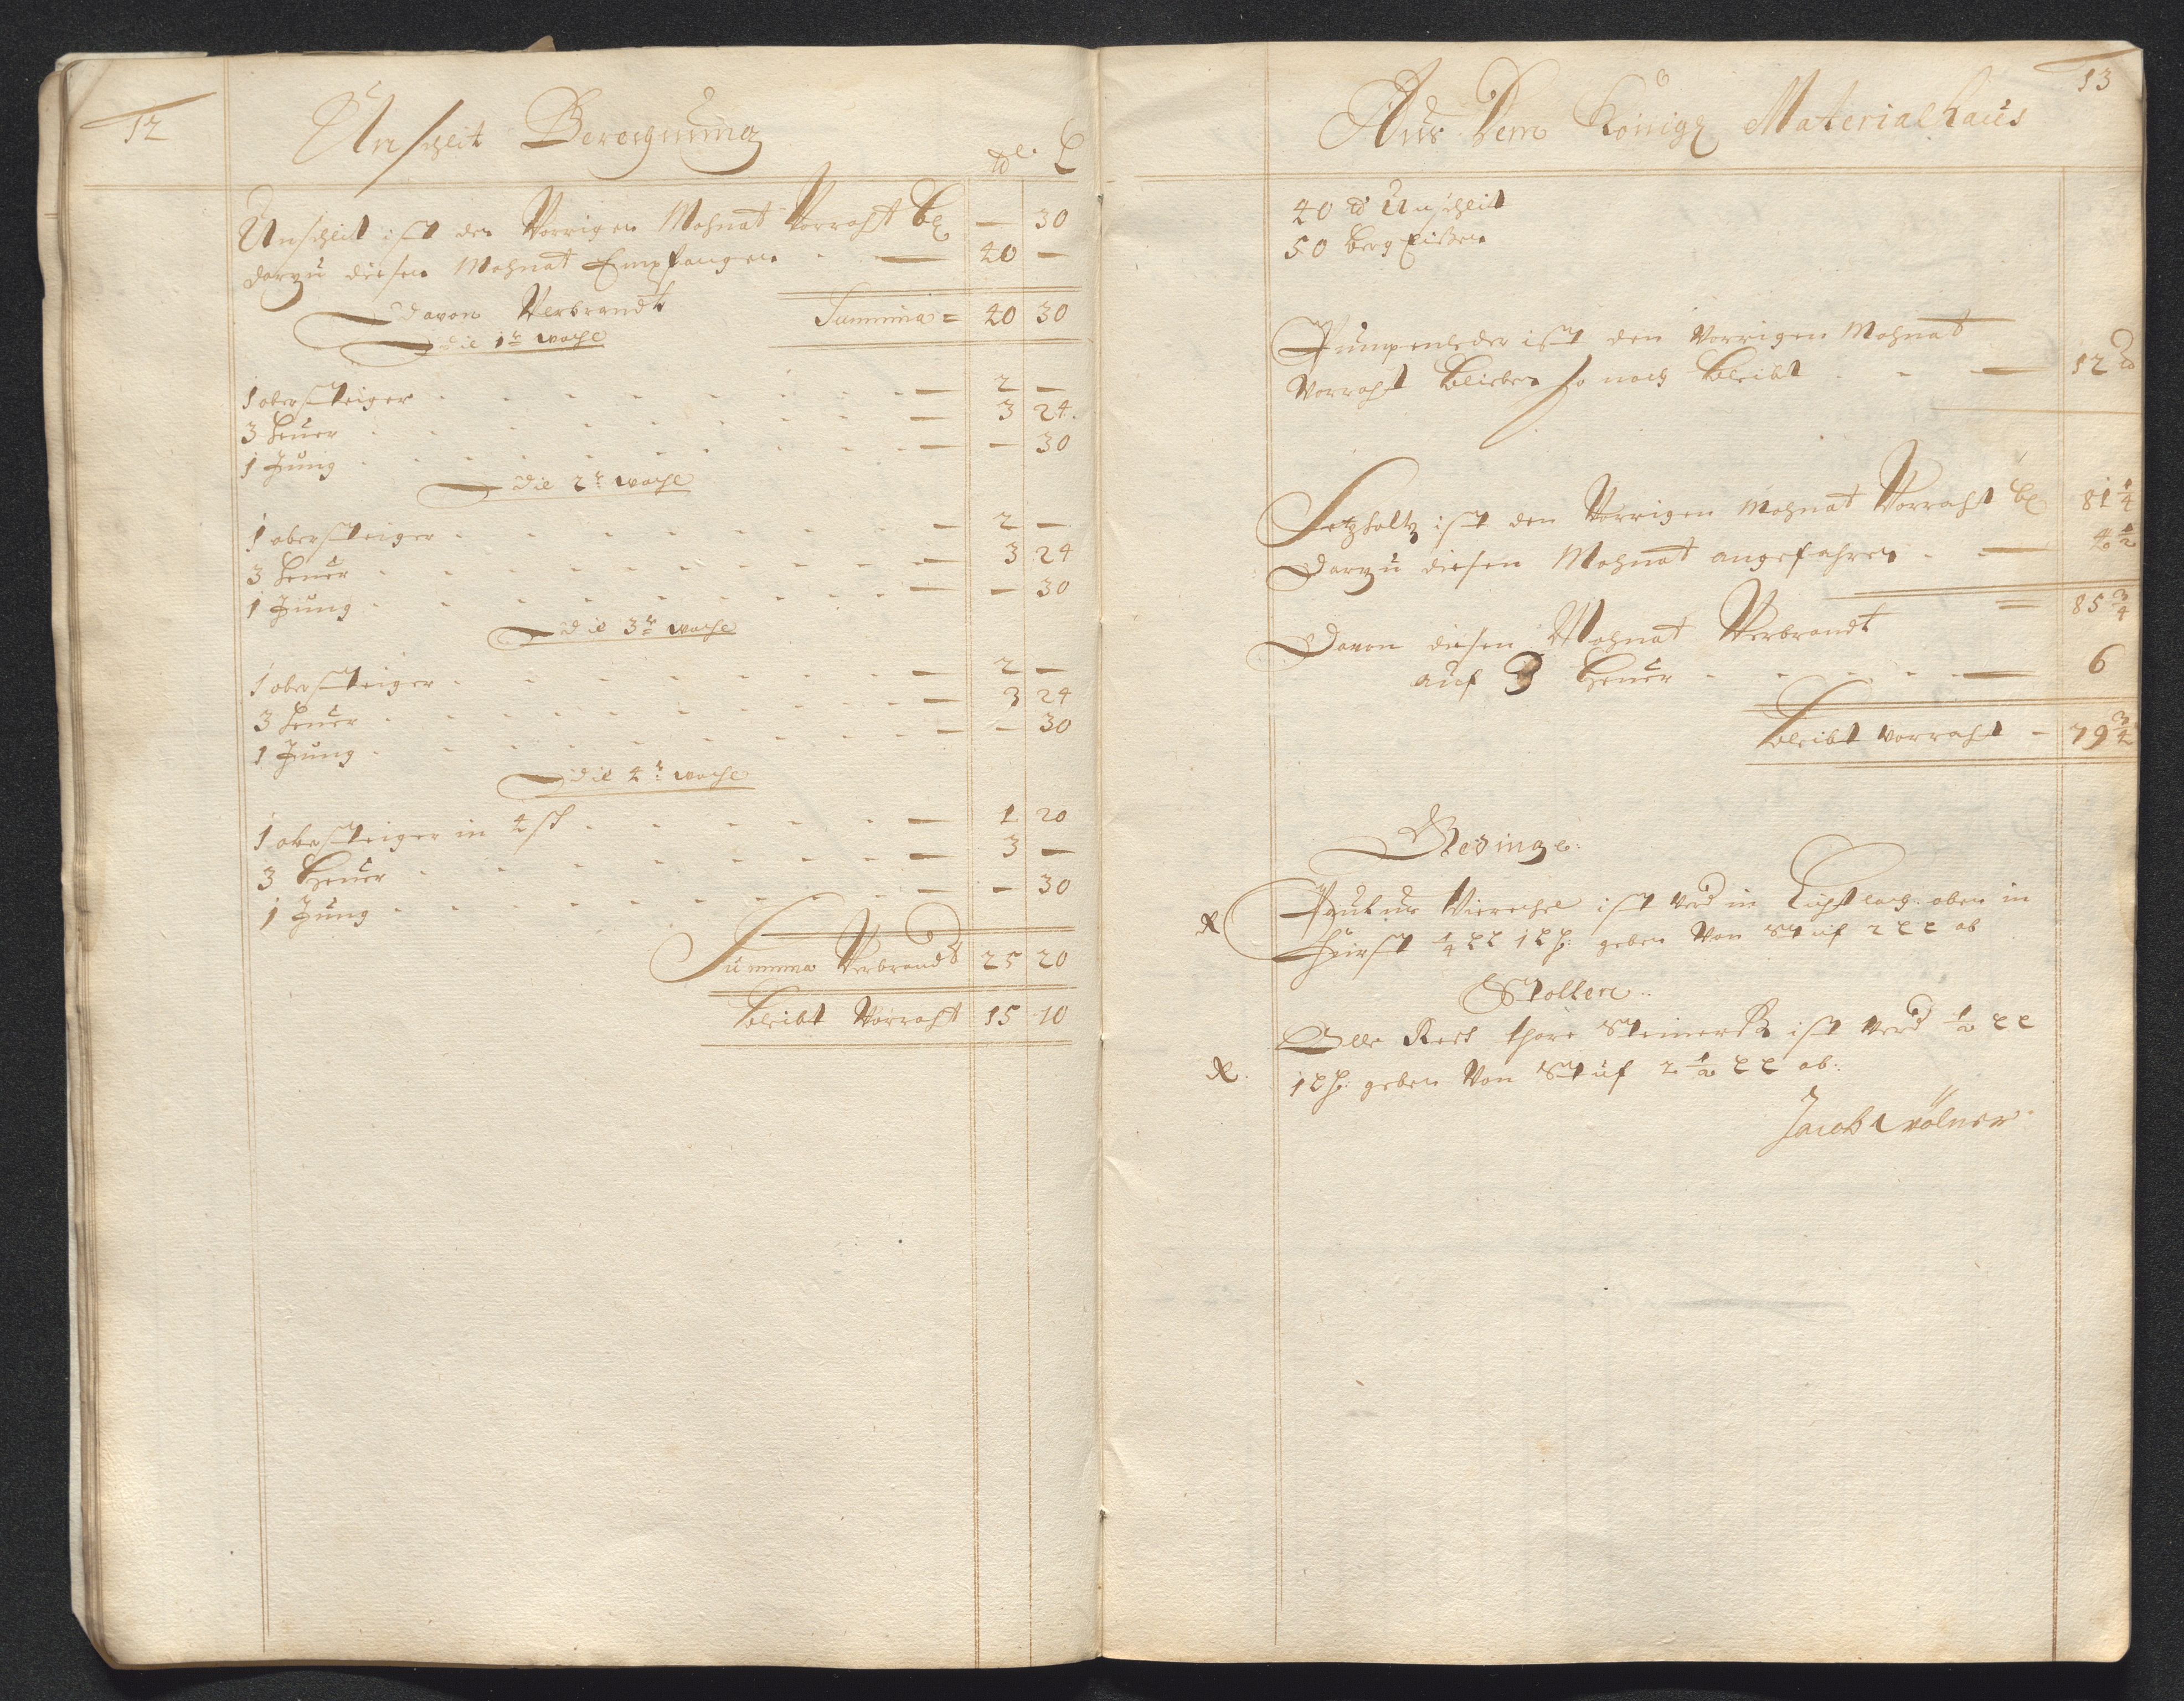 12
Unschlit Berechnung
℔ L
Unschlit ist den Vorrigen Mohnat Vorraht bl — 30
darzu diesen Mohnat Empfangen — 40 —
davon Verbrandt Summa = 40 30
die 1te woche
1 obersteiger — 2 —
3 heuer — 3 24.
1 Jung — — 30
die 2te woche
1 obersteiger — 2 —
3 heuer — 3 24
1 Jung — — 30
die 3te woche
1 obersteiger — 2 —
3 heuer — 3 24
1 Jung — — 30
die 4te woche
1 obersteiger in 4 sch — 1 20
3 Heuer — 3 —
1 Jung — — 30
Summa Verbrandt 25 20
bleibt Vorraht 15 10
13
Aus Dem Königl Materialhaus
40 ℔ Unschlit
50 berg Eißen
Pumpenleder ist den Vorrigen Mohnat
Vorraht blieben so noch bleibt — 12 ℔
Setzholtz ist den Vorrigen Mohnat Vorraht bl 81 1/4
Darzu diesen Mohnat angefahren — 4 1/2
= 85 3/4
Davon diesen Mohnat Verbrandt
auf 3 Heuer — 6
bleibt vorraht — 79 3/4
Gedinge:
Paulus Vierechel ist verd in Luftloch oben in
först 1/4 geben Von Stuf 2 ab
Stollen
Olle Steinersk ist verd 1/2
geben Von Stuf 2 1/2 ab:
Jacob Wölner